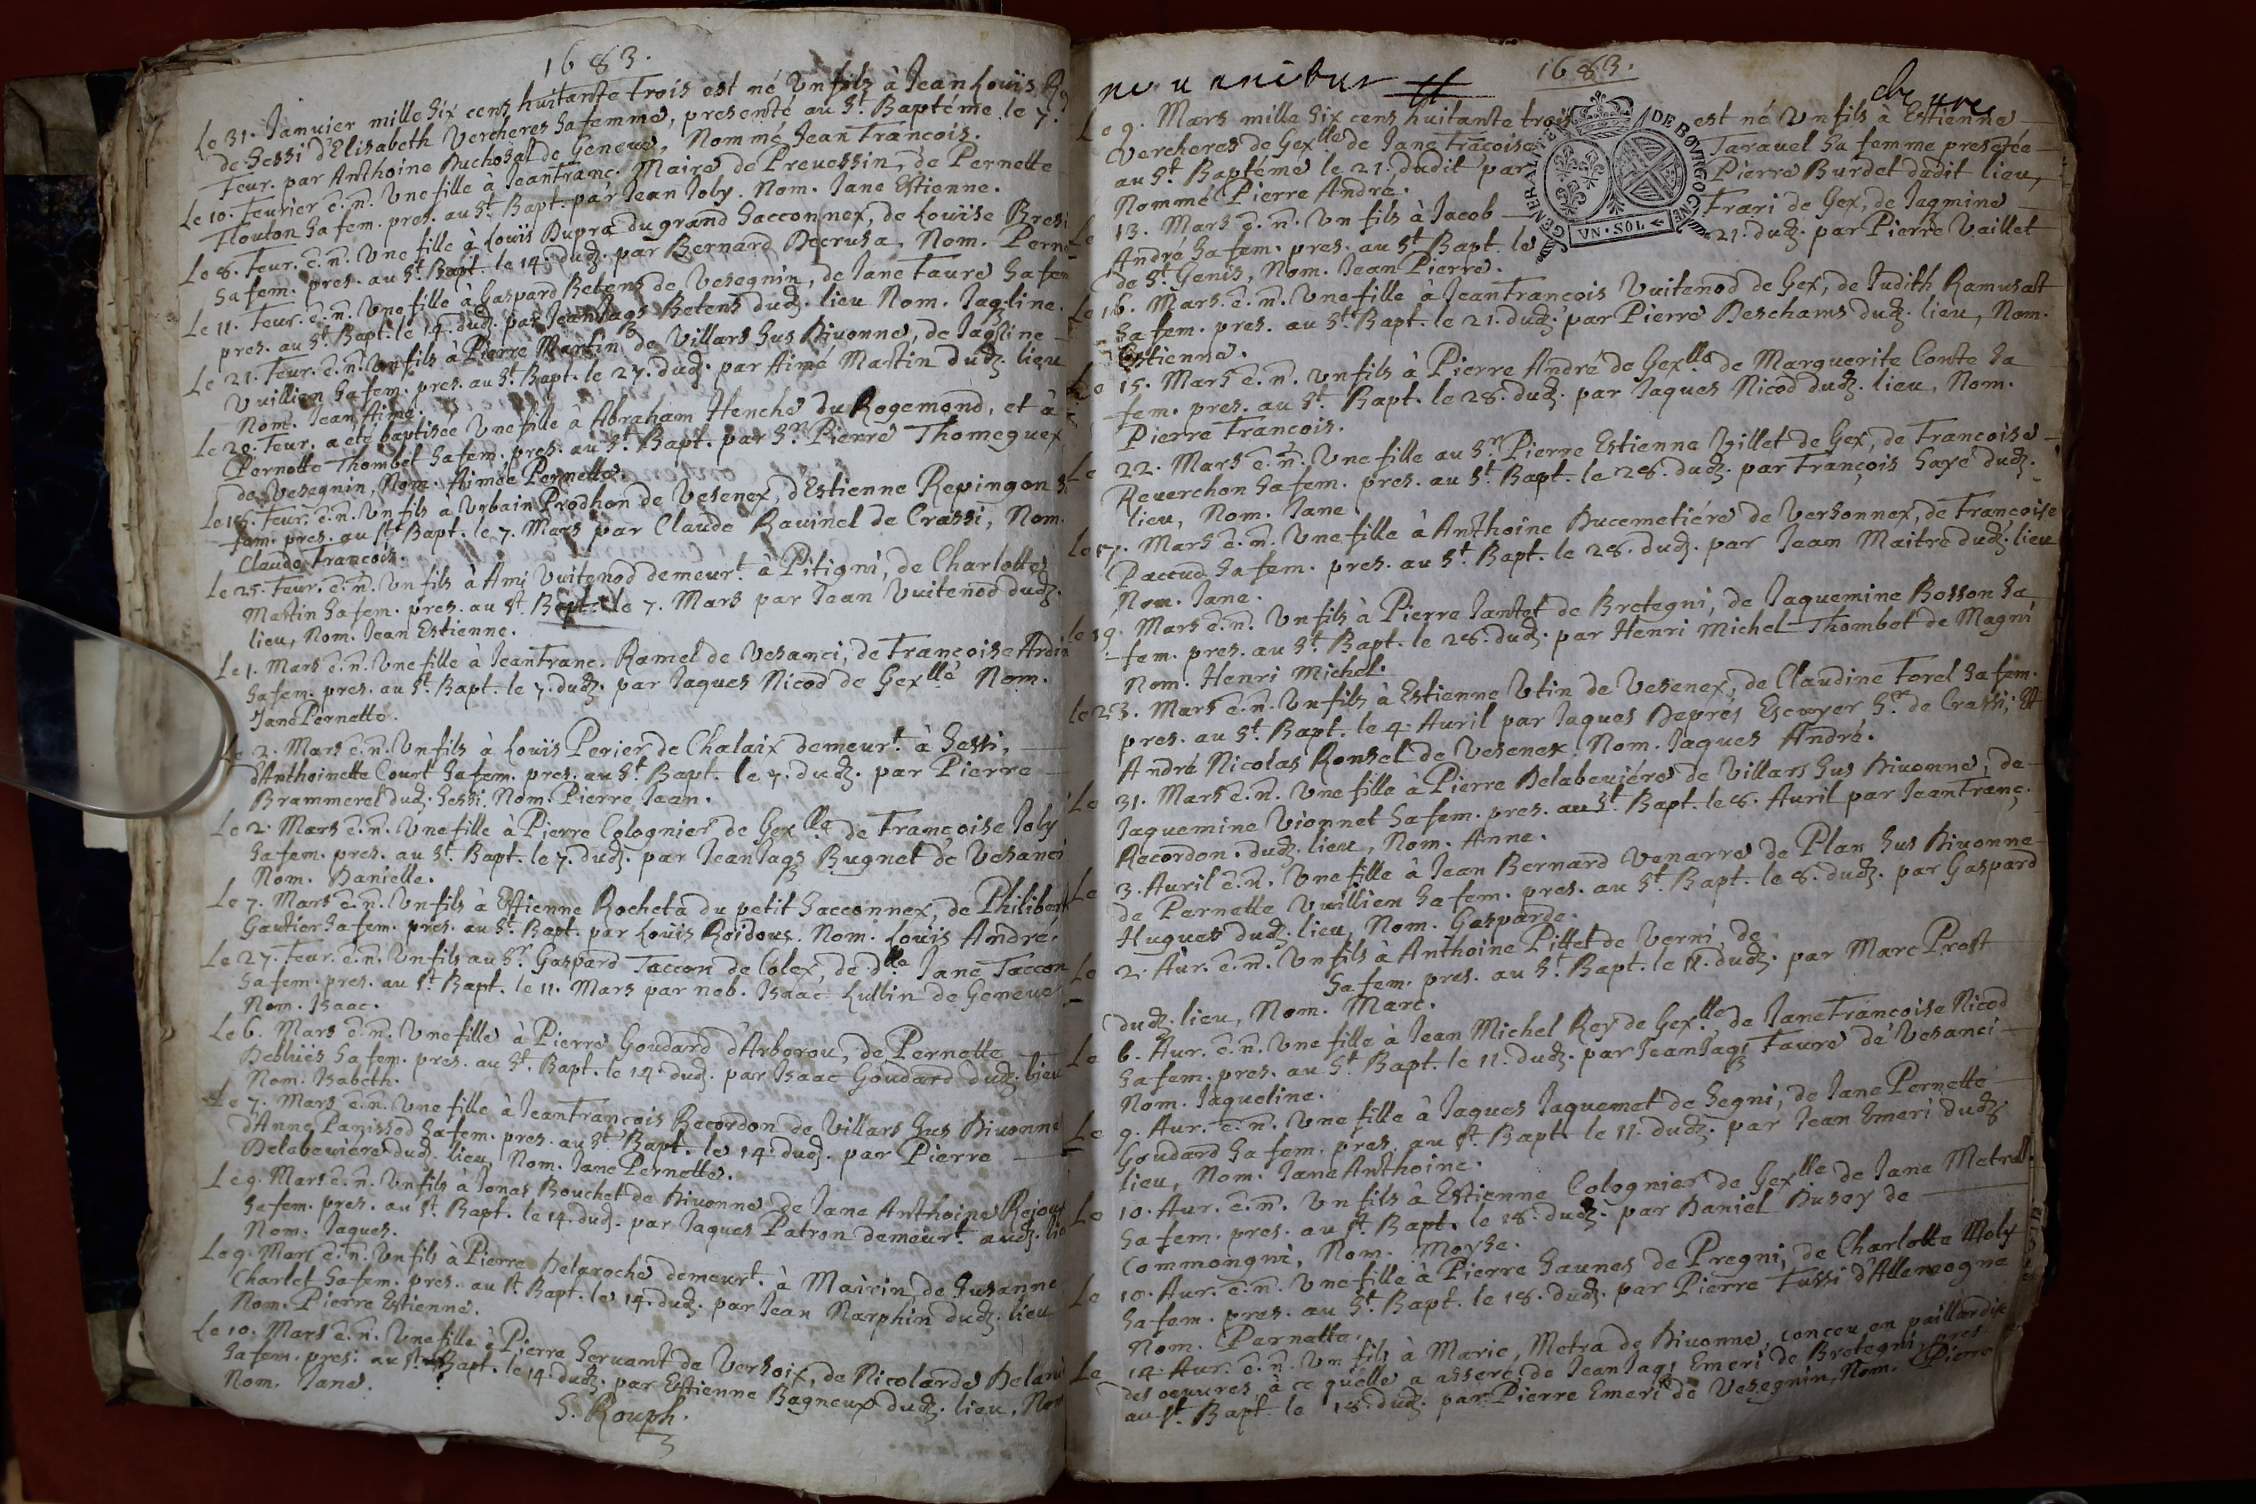 1683.
Le 31. Januier mille Six cens huitante Trois est né Vn fils à Jean Louïs
de Sessi d'Elisabeth Vercheres Sa femme, presenté au St. Baptéme le 7.
Feur. par Anthoine Duchosal de Geneue, Nommé Jean Francois.
Le 10. Feurier e. n. Vne fille à Jean Franc. Maire de Preuessin, de Pernette
Flouton Sa fem. pres. au St. Bapt. par Jean Joby. Nom. Jane Estienne.
Le 8. Feur. e. n. Vne fille à Louïs Dupra du grand Sacconnex, de Louïse
Sa fem. pres. au St. Bapt. le 14. dudz. par Bernard Decrusa, Nom.
Le 11. Feur. e. n. Vne fille à Gaspard Betens de Vesegnin, de Jane Faure Sa fem
pres. au St. Bapt. le 14. dudz. par Jean Jaqs Betens dudz. lieu Nom. Jaq.line.
Le 21. Feur. e. n. Vn fils à Pierre Martin de Villars Sus Diuonne, de Jaq.line
Vuillien Sa fem. pres. au St. Bapt. le 27. dudz. par Aimé Martin dudz. lieu
Nom. Jean Aimé.
Le 20. Feur. a eté baptisée Vne fille à Abraham Henche du Rogemond, et à
Pernette Thombet Sa fem. pres. au St. Bapt. par Sr. Pierre Thomeguex
de Vesegnin, Nom. Aimée Pernette.
Le 15. Feur. e. n. Vn fils a Vrbain Prodhon de Vesenex, d'Estienne Repingon
fem. pres. au St. Bapt. le 7. Mars par Claude Rauinel de Crassi, Nom.
Claude Francois.
Le 25. Feur. e. n. Vn fils à Ami Vuitenod demeurt. à Pitigni, de Charlotte
Martin Sa fem. pres. au St. Bapt. le 7. Mars par Jean Vuitenod dudz.
lieu, Nom. Jean Estienne.
Le 1. Mars e. n. Vne fille à Jean Franc. Ramel de Vesanci, de Francoise
Sa fem. pres. au St. Bapt. le 7. dudz. par Jaques Nicod de Gexlle Nom.
Jane Pernette.
Le 2. Mars e. n. Vn fils à Louïs Perier de Chalaix demeurt. à Sessi,
d'Anthoinette Court Sa fem. pres. au St. Bapt. le 7. dudz. par Pierre
Brammerel dudz. Sessi, Nom. Pierre Jean.
Le 2. Mars e. n. Vne fille à Pierre Colognier de Gexlle de Francoise Joly
Sa fem. pres. au St. Bapt. le 7. dudz. par Jean Jaqs Bugnet de Vesanci
Nom. Danielle.
Le 7. Mars e. n. Vn fils à Estienne Rocheta du petit Sacconnex, de Philibert
Gautier Sa fem. pres. au St. Bapt. par Louïs Roidoux. Nom. Louïs André.
Le 27. Feur. e. n. Vn fils au Sr. Gaspard Taccon de Colex, de dlle Jane Taccon
Sa fem. pres. au St. Bapt. le 11. Mars par nob. Isaac Lullin de Geneue
Nom. Isaac.
Le 6. Mars e. n. Vne fille à Pierre Goudard d'Arborou, de Pernette
Debluës Sa fem. pres. au St. Bapt. le 14. dudz. par Isaac Goudard dudz. lieu
Nom. Isabeth.
Le 7. Mars e. n. Vne fille à Jean François Recordon de Villars Sus Diuonne
d'Anne Panissod Sa fem. pres. au St. Bapt. le 14. dudz. par Pierre
Delabeuiere dudz. lieu, Nom. Jane Pernette.
Le 9. Mars e. n. Vn fils à Jonas Bouchet de Diuonne de Jane Anthoine
Sa fem. pres. au St. Bapt. le 14. dudz. par Jaques Patron demeurt. audz.
Nom. Jaques.
Le 9. Mars e. n. Vn fils à Pierre Delaroche demeurt. à Mairin, de Susanne
Charlet Sa fem. pres. au St. Bapt. le 14. dudz. par Jean Narphin dudz. lieu
Nom. Pierre Estienne.
Le 10. Mars e. n. Vne fille à Pierre Seruant de Versoix, de Nicolarde
Sa fem. pres. au St. Bapt. le 14. dudz. par Estienne Bagneux dudz. lieu, Nom
Nom. Jane.
S. Rouph.
1683.
Le 9. Mars mille Six cens huitante trois est né Vn fils à Estienne
Vercheres de Gexlle de Jane Francoise Tarauel Sa femme presétée
au St. Baptéme le 21. dudit par Pierre Burdet dudit lieu,
Nommé Pierre André.
GENERALITE DE BOVRGOGNE
VN·SOL
Le 13. Mars e. n. Vn fils à Jacob Frari de Gex, de Jaqmine
André Sa fem. pres. au St. Bapt. le 21. dudz. par Pierre Vaillet
de St. Genis, Nom. Jean Pierre.
Le 16. Mars e. n. Vne fille à Jean Francois Vuitenod de Gex, de Judith Ramusat
Sa fem. pres. au St. Bapt. le 21. dudz. par Pierre Deschams dudz. lieu, Nom.
Estienne.
Le 15. Mars e. n. Vn fils à Pierre André de Gexlle de Marguerite Conte Sa
fem. pres. au St. Bapt. le 28. dudz. par Jaques Nicod dudz. lieu, Nom.
Pierre Francois.
Le 22. Mars e. n. Vne fille au Sr. Pierre Estienne Villet de Gex, de Francoise
Reuerchon Sa fem. pres. au St. Bapt. le 28. dudz. par François Sayé dudz.
lieu, Nom. Jane.
Le 17. Mars e. n. Vne fille à Anthoine Ducemetiére de Versonnex, de Francoise
Paccud Sa fem. pres. au St. Bapt. le 28. dudz. par Jean Maitre dudz. lieu
Nom. Jane.
le 19. Mars e. n. Vn fils à Pierre Jantet de Bretegni, de Jaquemine Bosson Sa
fem. pres. au St. Bapt. le 28. dudz. par Henri Michel Thombet de Magni
Nom. Henri Michel.
le 23. Mars e. n. Vn fils à Estienne Vtin de Vesenex, de Claudine Forel Sa fem.
pres. au St. Bapt. le 4. Auril par Jaques Deprés Escuyer Sr. de Crassi, Et
André Nicolas Ronzel de Vesenex Nom. Jaques André.
Le 31. Mars e. n. Vne fille à Pierre Delabeuiére de Villars Sus Diuonne, de
Jaquemine Vionnet Sa fem. pres. au St. Bapt. le 8. Auril par Jean Franc.
Recordon. dudz. lieu, Nom. Anne.
Le 3. Auril e. n. Vne fille à Jean Bernard Venarre de Plan Sus Diuonne
de Pernette Vuillien Sa fem. pres. au St. Bapt. le 8. dudz. par Gaspard
Hugues dudz. lieu, Nom. Gasparde.
Le 2. Aur. e. n. Vn fils à Anthoine Pittet de Verni, de
Sa fem. pres. au St. Bapt. le 11. dudz. par Marc Prost
dudz. lieu, Nom. Marc.
Le 6. Aur. e. n. Vne fille à Jean Michel Rey de Gexlle de Jane Francoise Nicod
Sa fem. pres. au St. Bapt. le 11. dudz. par Jean Jaqs Faure de Vesanci
Nom. Jaqueline.
Le 9. Aur. e. n. Vne fille à Jaques Jaquemet de Segni, de Jane Pernette
Goudard Sa fem. pres. au St. Bapt. le 11. dudz. par Jean Emeri dudz.
lieu, Nom. Jane Anthoine.
Le 10. Aur. e. n. Vn fils à Estienne Colognier de Gexlle de Jane Metrall.
Sa fem. pres. au St. Bapt. le 18. dudz. par Daniel Dusoy de
Commongni, Nom. Moyse.
Le 10. Aur. e. n. Vne fille à Pierre Saunes de Pregni, de Charlotte Moly
Sa fem. pres. au St. Bapt. le 18. dudz. par Pierre Fussi d'Allemogne
Nom. Pernette.
Le 14. Aur. e. n. Vn fils à Marie, Metra de Diuonne, conceu en paillardise
des oeuures, à ce quelle a asseré, de Jean Jaqs Emeri de Bretegni, pres
au St. Bapt. le 18. dudz. par Pierre Emeri de Vesegnin, Nom. Pierre